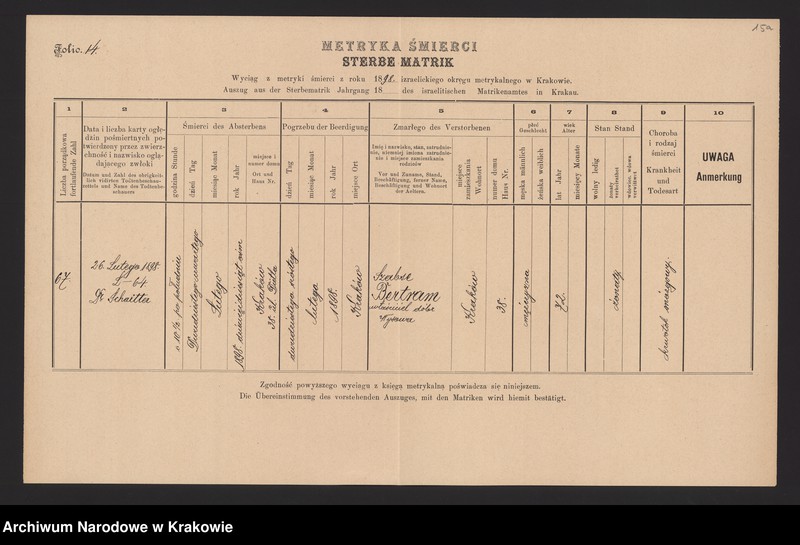 15a
Folio. 14.
METRYKA ŚMIERCI
STERBE MATRIK
Wyciąg z metryki śmierci z roku 1898. izraelickiego okręgu metrykalnego w Krakowie.
Auszug aus der Sterbematrik Jahrgang 18 des israelitischen Matrikenamtes in Krakau.
1
2
3
4
5
6
7
8
9
10
Liczba porządkowa
fortlaufende Zahl
Data i liczba karty oglę-
dzin pośmiertnych po-
twierdzony przez zwierz-
chność i nazwisko oglą-
dającego zwłoki
Datum und Zahl des obrigkeit-
lich vidirten Todtenbeschau-
zettels und Name des Todtenbe-
schauers
Śmierci des Absterbens
godzina Stunde
dzień Tag
miesiąc Monat
rok Jahr
miejsce i
numer domu
Ort und
Haus Nr.
Pogrzebu der Beerdigung
dzień Tag
miesiąc Monat
rok Jahr
miejsce Ort
Zmarłego des Verstorbenen
Imię i nazwisko, stan, zatrudnie-
nie, niemniej imiona zatrudnie-
nie i miejsce zamieszkania
rodziców
Vor und Zuname, Stand,
Beschäftigung, ferner Name,
Beschäftigung und Wohnort
der Aeltern.
miejsce
zamieszkania
Wohnort
numer domu
Haus Nr.
płeć
Geschlecht
męska männlich
żeńska weiblich
wiek
Alter
lat Jahr
miesięcy Monate
Stan Stand
wolny ledig
żonaty
verheirathet
wdowiec, wdowa
verwittwet
Choroba
i rodzaj
śmierci
Krankheit
und
Todesart
UWAGA
Anmerkung
67
26. Lutego 1898.
L - 64
Dr Schaitter
o 10½ po południu
Dwudziestego czwartego
Lutego
1898 dziewięćdziesiąt ósm
Kraków
38. ul. Dietla
dwudziestego szóstego
Lutego
1898.
Kraków
Szabse
Bertram
właściciel dóbr
Kraków
38.
mężczyzna
72.
żonaty
krwotok mózgowy.
Zgodność powyższego wyciągu z księgą metrykalną poświadcza się niniejszem.
Die Übereinstimmung des vorstehenden Auszuges, mit den Matriken wird hiemit bestätigt.
Archiwum Narodowe w Krakowie